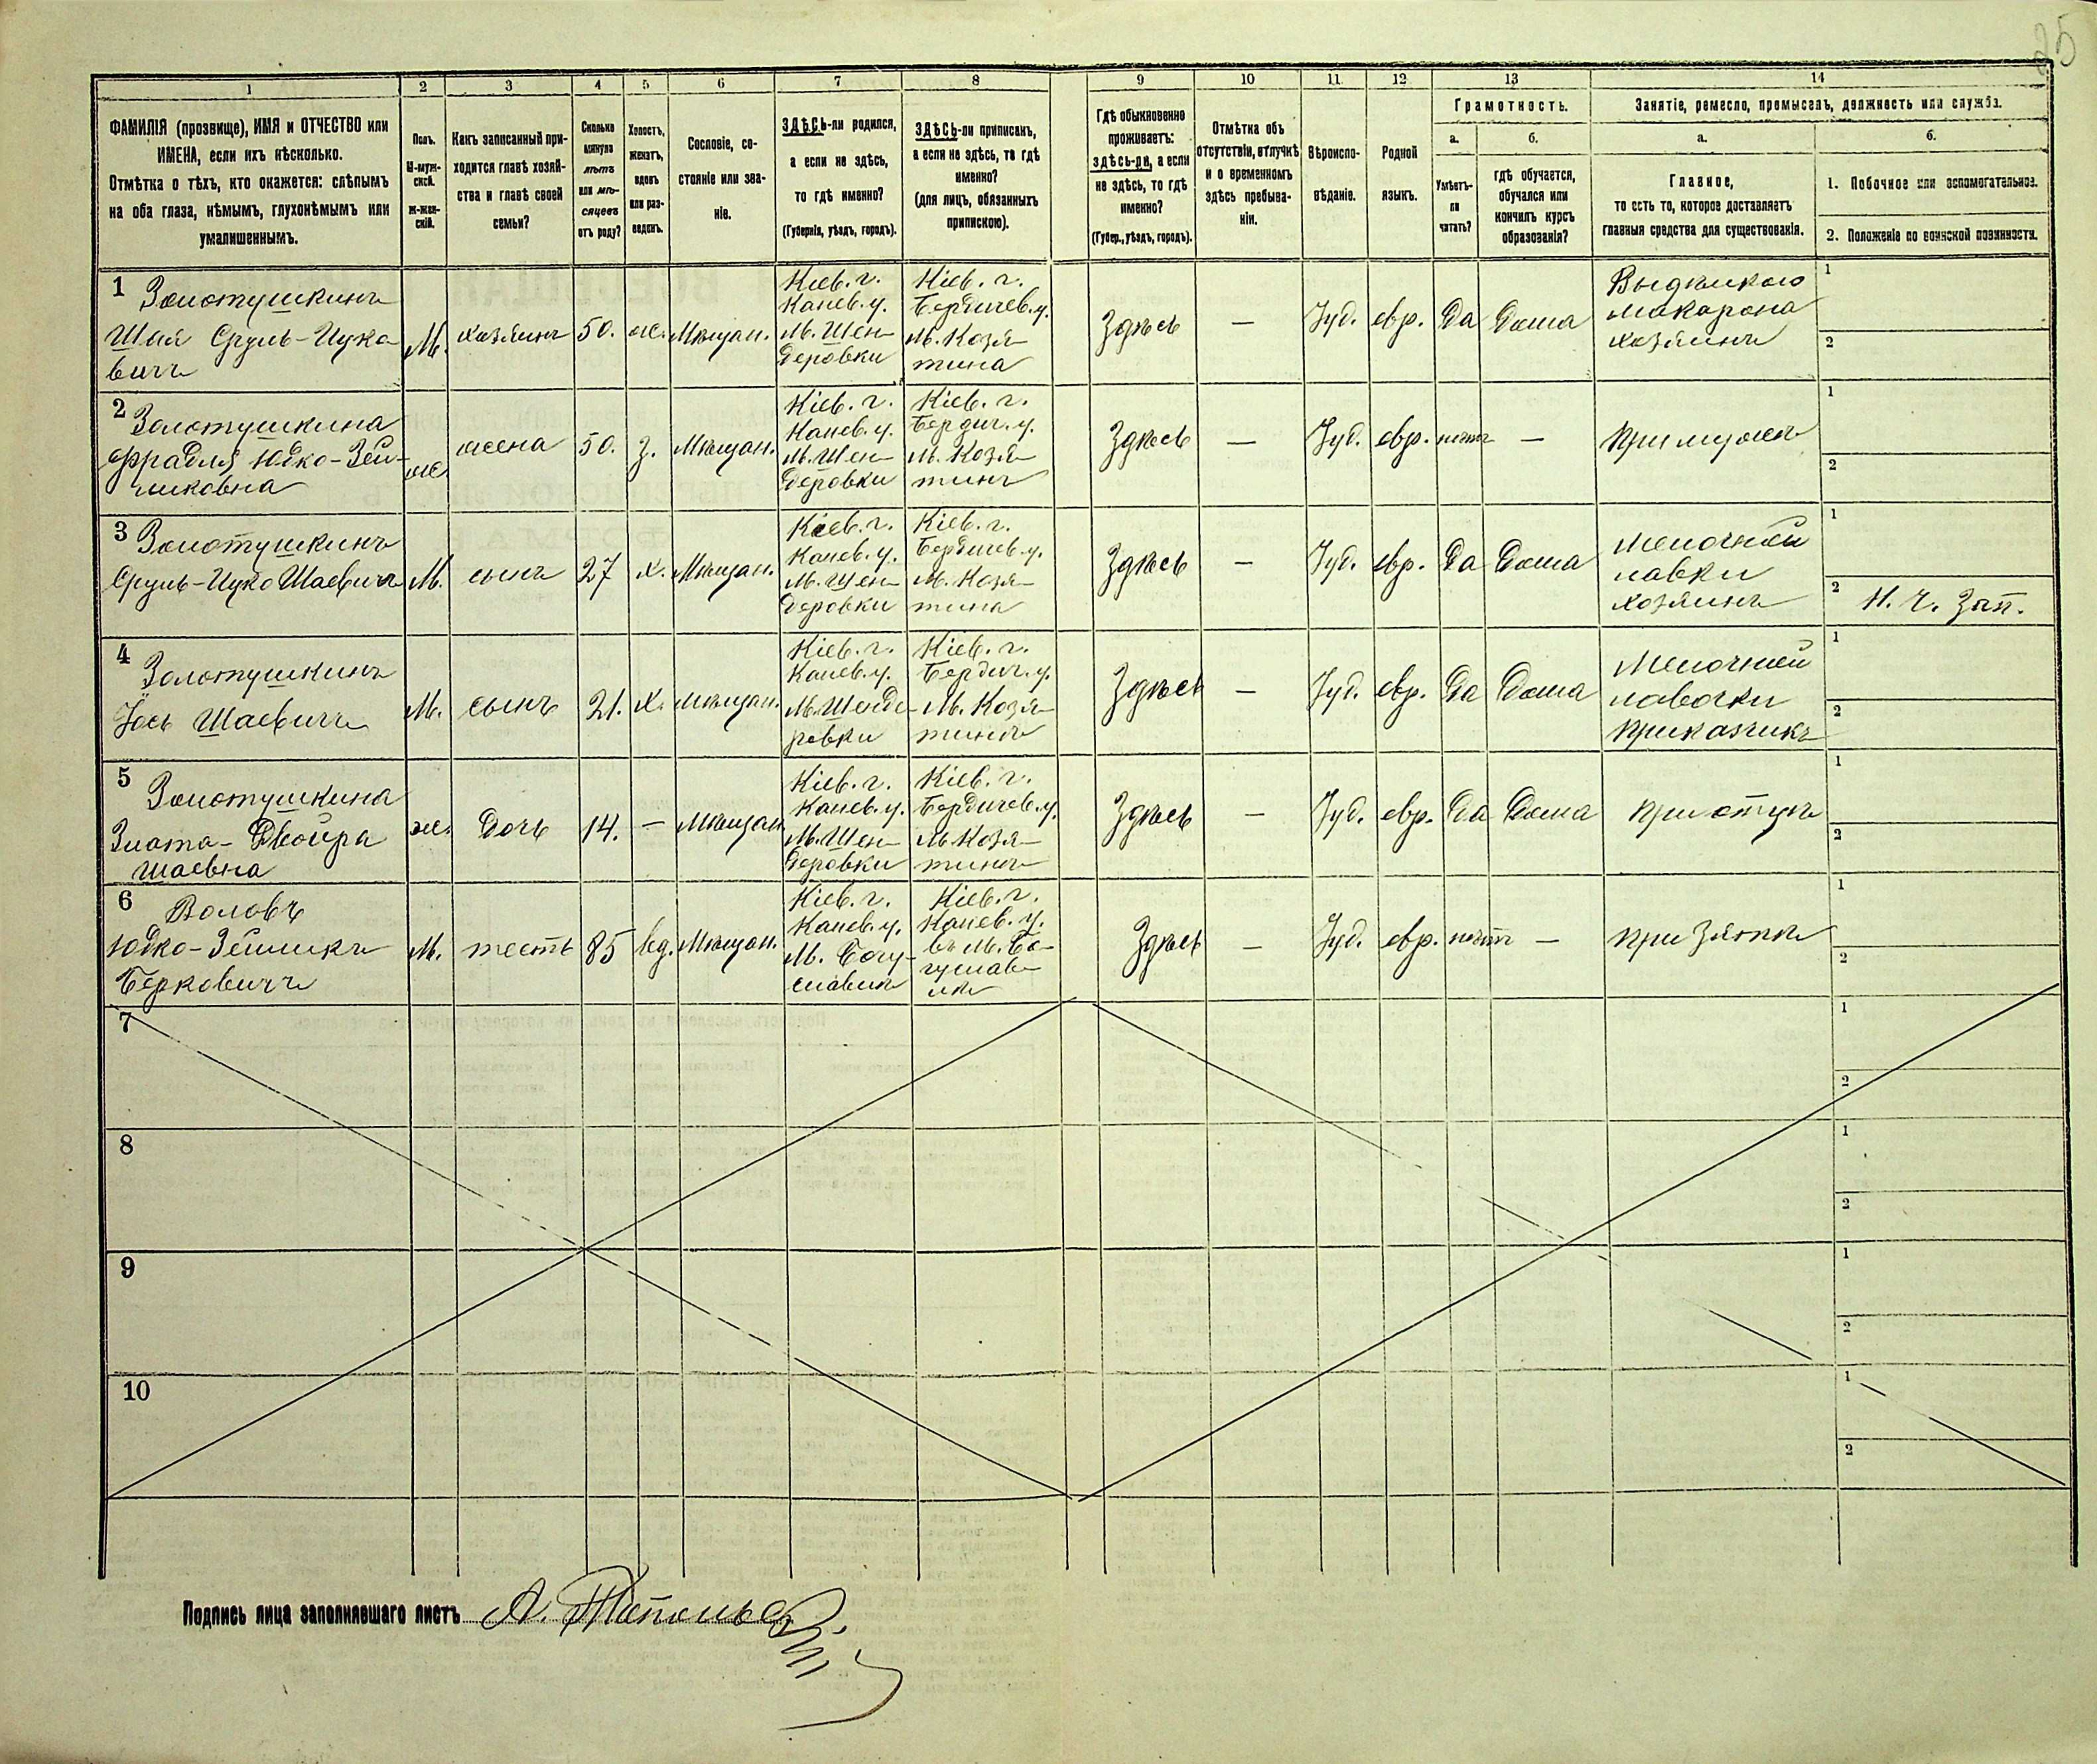 25
1 2 3 4 5 6 7 8 9 10 11 12 13 14
ФАМИЛІЯ (прозвище), ИМЯ и ОТЧЕСТВО или
ИМЕНА, если ихъ нѣсколько.
Отмѣтка о тѣхъ, кто окажется: слѣпымъ
на оба глаза, нѣмымъ, глухонѣмымъ или
умалишеннымъ.
Полъ.
М-муж-
ской.
Ж-жен-
скій.
Какъ записанный при-
ходится главѣ хозяй-
ства и главѣ своей
семьи?
Сколько
минуло
лѣтъ
или мѣ-
сяцевъ
отъ роду?
Холостъ,
женатъ,
вдовъ
или раз-
веденъ.
Сословіе, со-
стояніе или зва-
ніе.
ЗДѢСЬ-ли родился,
а если не здѣсь,
то гдѣ именно?
(Губернія, уѣздъ, городъ).
ЗДѢСЬ-ли приписанъ,
а если не здѣсь, то гдѣ
именно?
(для лицъ, обязанныхъ
припискою).
Гдѣ обыкновенно
проживаетъ:
здѣсь-ли, а если
не здѣсь, то гдѣ
именно?
(Губер., уѣздъ, городъ).
Отмѣтка объ
отсутствіи, отлучкѣ
и о временномъ
здѣсь пребыва-
ніи.
Вѣроиспо-
вѣданіе.
Родной
языкъ.
Грамотность.
а.
Умѣетъ-
ли
читать?
б.
гдѣ обучается,
обучался или
кончилъ курсъ
образованія?
Занятіе, ремесло, промыселъ, должность или служба.
а.
Главное,
то есть то, которое доставляетъ
главныя средства для существованія.
б.
1. Побочное или вспомогательное.
2. Положеніе по воинской повинности.
1
Золотушкинъ
Шая Сруль-Ицко-
вичъ
М.
хозяинъ
50.
ж.
Мѣщан.
Кіев. г.
Канев. у.
М. Шен-
деровки
Кіев. г.
Бердичев. у.
М. Козя-
тина
Здѣсь
—
Іуд.
евр.
Да
Дома
макарона
хозяинъ
1
2
2
Золотушкина
Фрадля Юдко-Зей-
ликовна
ж.
жена
50.
з.
Мѣщан.
Кіев. г.
Канев. у.
М. Шен-
деровки
Кіев. г.
Бердич. у.
М. Козя-
тинъ
Здѣсь
—
Іуд.
евр.
нѣтъ
—
При мужѣ
1
2
3
Золотушкинъ
Сруль-Ицко Шаевичъ
М.
сынъ
27
х.
Мѣщан.
Кіев. г.
Канев. у.
М. Шен-
деровки
Кіев. г.
Бердичев. у.
М. Козя-
тина
Здѣсь
—
Іуд.
евр.
Да
Дома
Мелочной
лавки
хозяинъ
1
2
Н. Ч. Зап.
4
Золотушкинъ
Іось Шаевичъ
М.
сынъ
21.
х.
Мѣщан.
Кіев. г.
Канев. у.
М. Шенде-
ровки
Кіев. г.
Бердич. у.
М. Козя-
тинъ
Здѣсь
—
Іуд.
евр.
Да
Дома
Мелочной
лавочки
Приказчикъ
1
2
5
Золотушкина
Злата-Двойра
Шаевна
ж.
Дочь
14.
—
Мѣщан
Кіев. г.
Канев. у.
М. Шен-
деровки
Кіев. г.
Бердичев. у.
М. Козя-
тинъ
Здѣсь
—
Іуд.
евр.
Да
Дома
При отцѣ
1
2
6
Воловъ
Юдко-Зейликъ
Берковичъ
М.
тесть
85
вд.
Мѣщан.
Кіев. г.
Канев. у.
М. Богу-
славкѣ
Кіев. г.
Канев. у.
въ М. Бо-
гуслав-
кѣ
Здѣсь
—
Іуд.
евр.
нѣтъ
—
При Зятѣ
1
2
7
1
2
8
1
2
9
1
2
10
1
2
Подпись лица заполнявшаго листъ